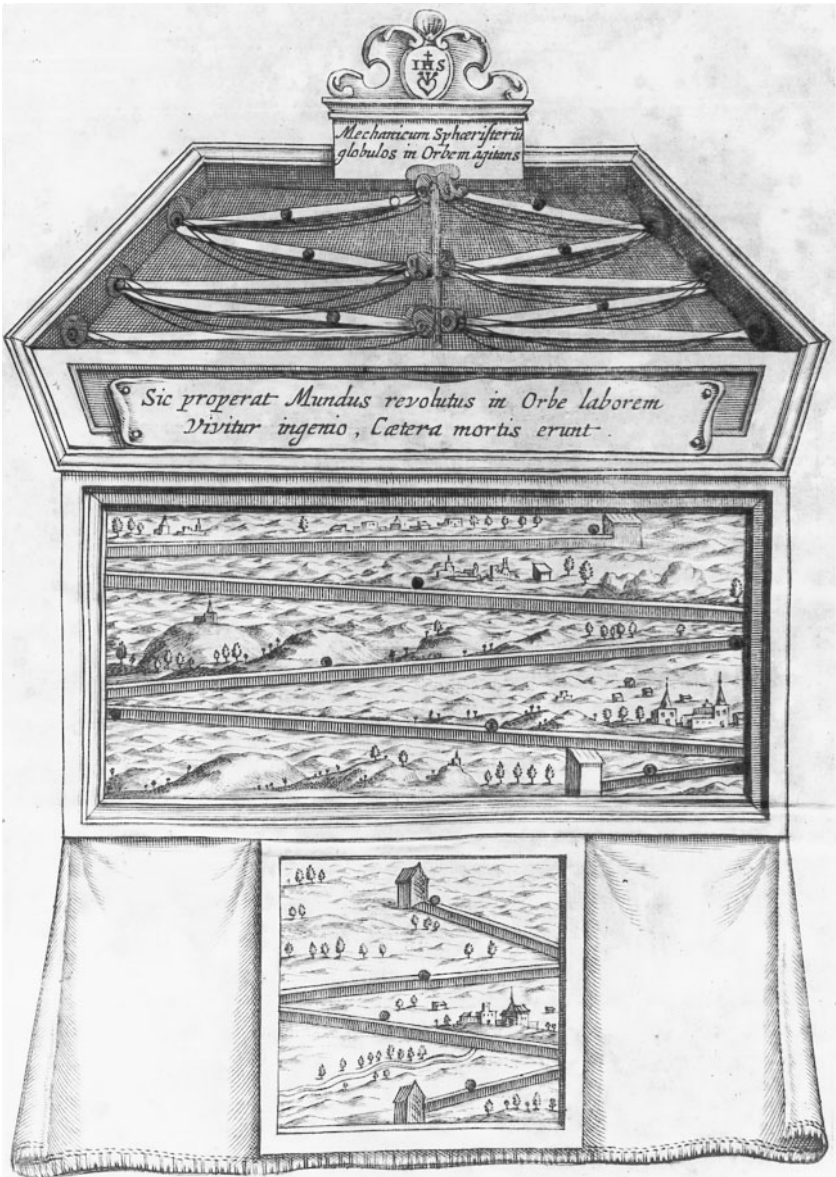 IHS
Mechanicum Sphæristeriū
globulos in Orbem agitans
Sic properat Mundus revolutus in Orbe laborem
Vivitur ingenio, Cætera mortis erunt.